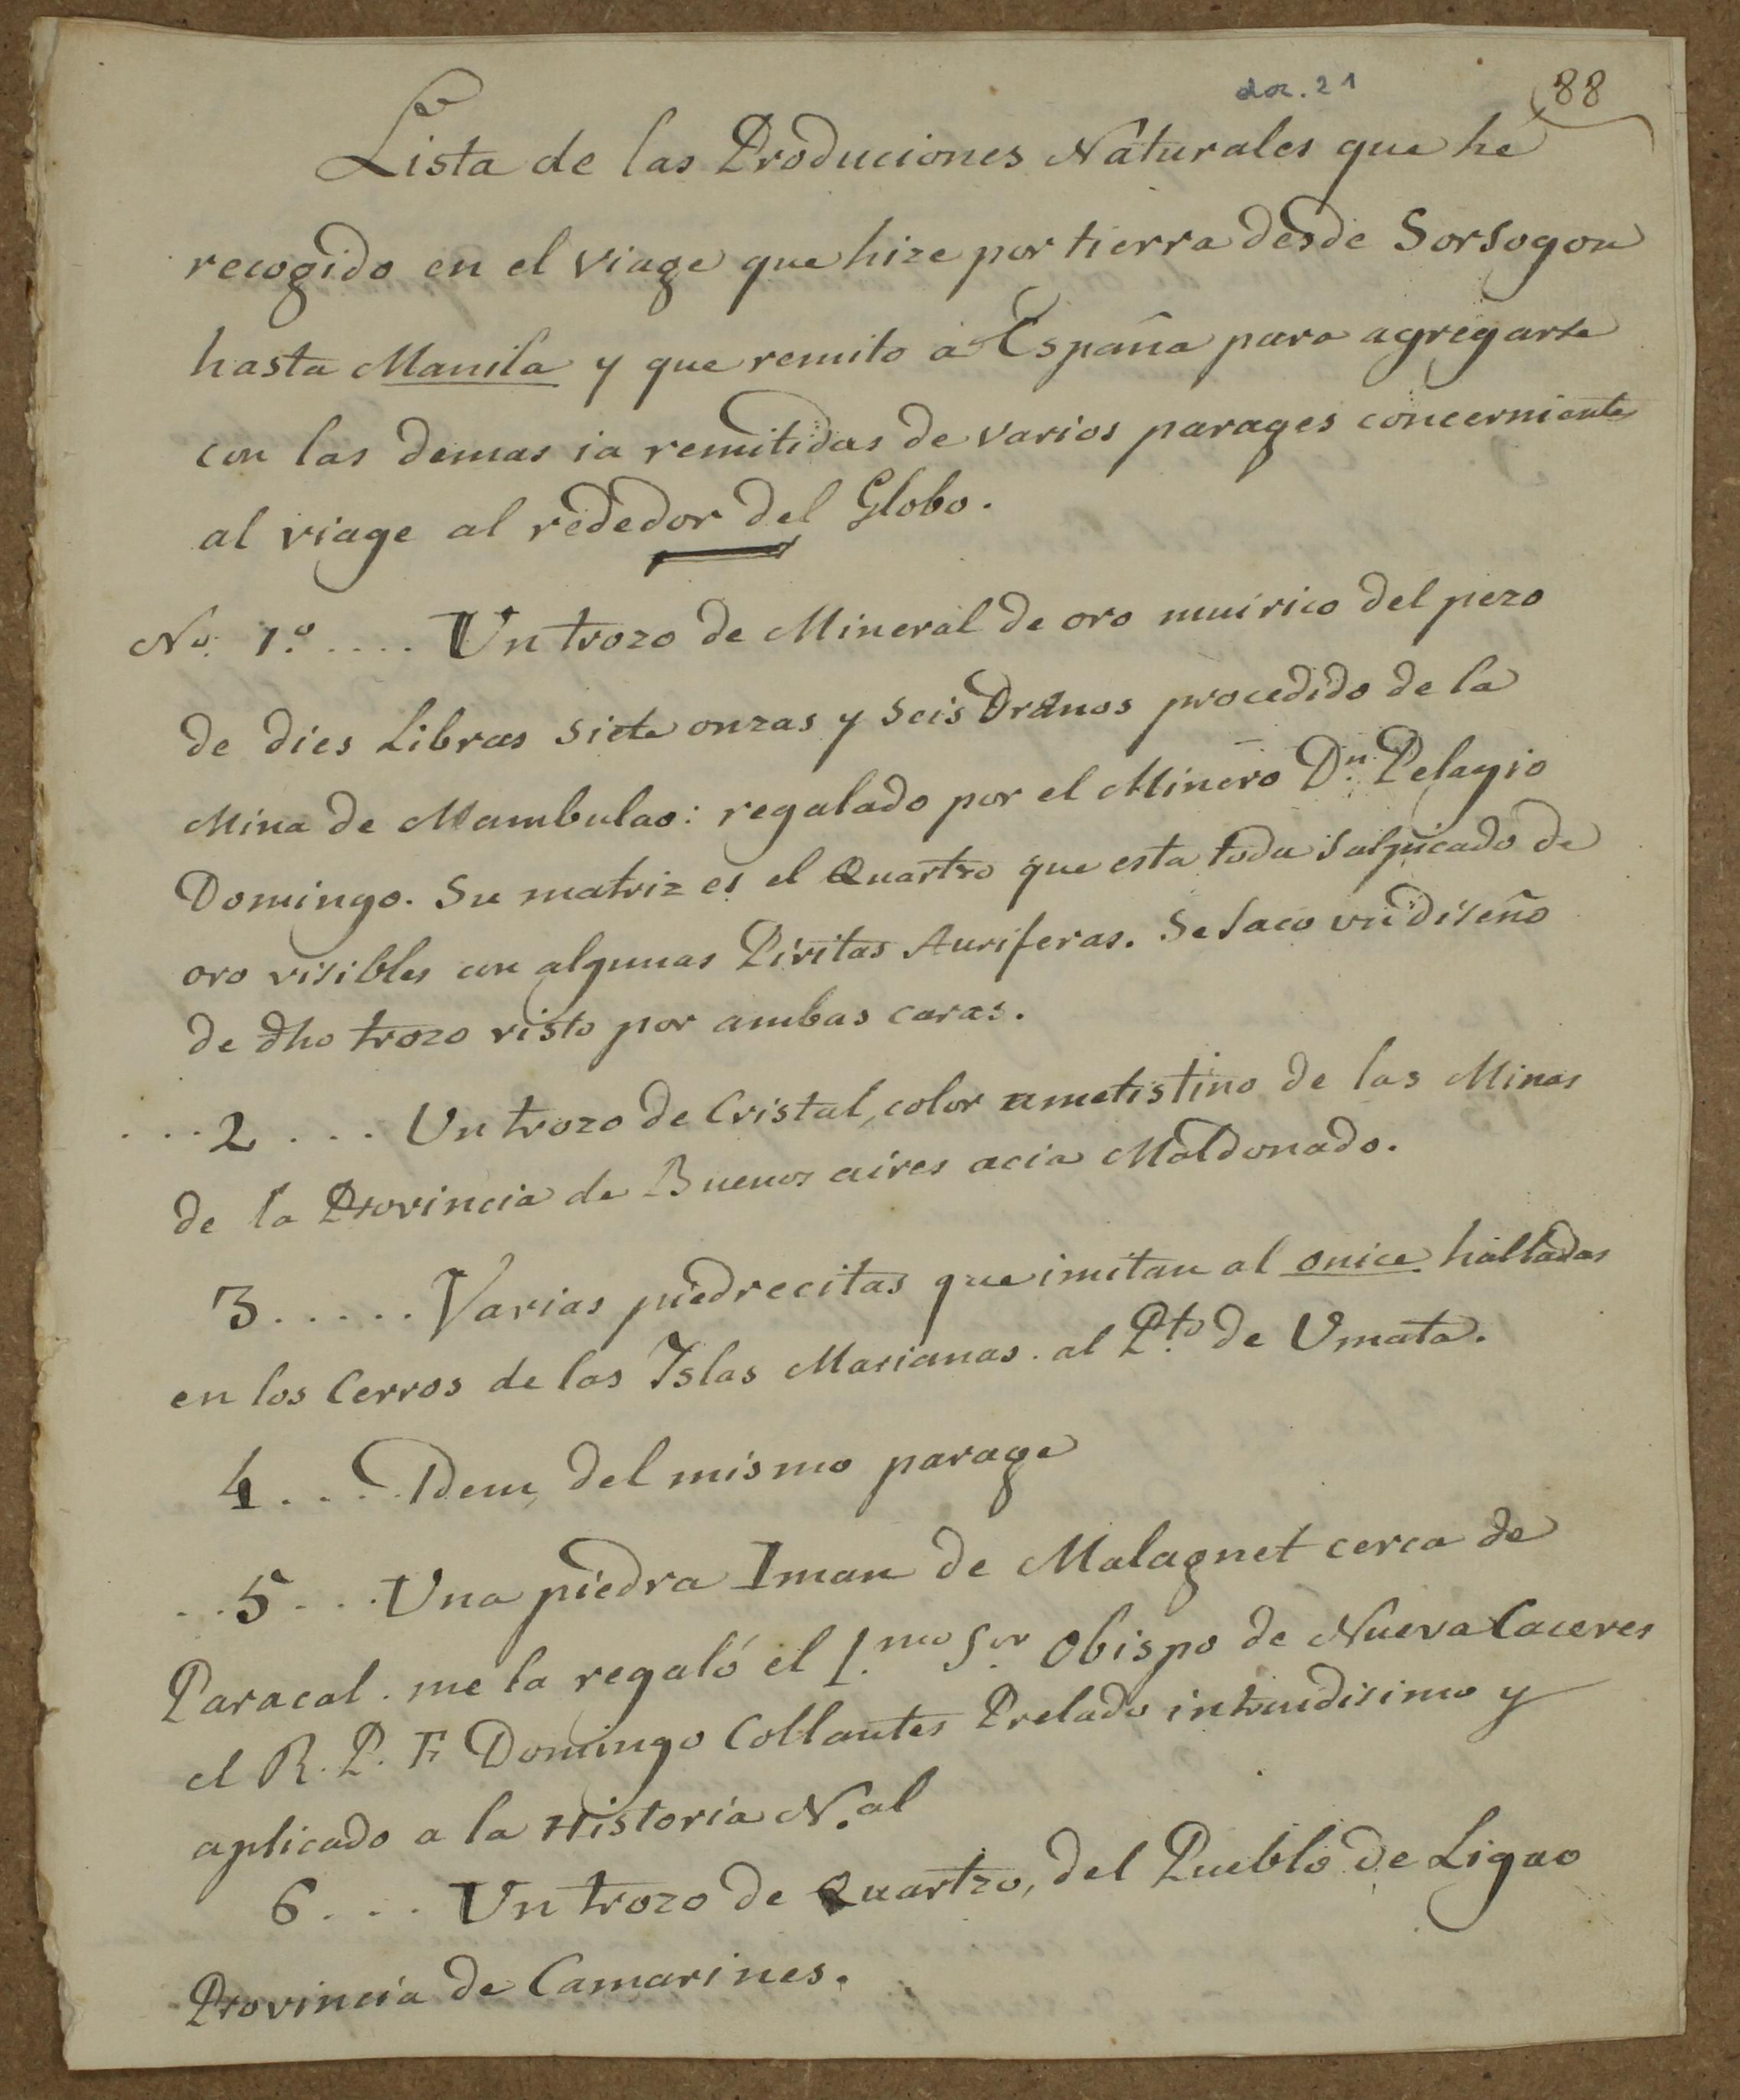 doc. 21
88
Lista de las Produciones Naturales que hé
recogido en el viage que hize por tierra desde Sorsogon
hasta Manila y que remito a España para agregarse
con las demas ia remitidas de varios parages concerniente
al viage al rededor del Globo.
No. 1.º .... Un trozo de Mineral de oro mui rico del pezo
de dies Libras siete onzas y seis procedido de la
Mina de Mambulao: regalado por el Minero Dn. Pelagio
Domingo. Su matriz es el Quartzo que esta todu salpicado de
oro visibles con algunas Piritas Auriferas. Se saco un diseño
de dho trozo visto por ambas caras.
...2 .... Un trozo de Cristal, color ametistino de las Minas
de la Provincia de Buenos aires acia Maldonado.
3...... Varias piedrecitas que imitan al onice halladas
en los Cerros de las Islas Marianas. al Pto. de Umata.
4.... IDem, del mismo parage
..5... Una piedra Iman de Malagnet cerca de
Paracal. me la regaló el I.mo S.or Obispo de Nueva Caceres
el R. P. F. Domingo Collantes Prelado y
aplicado a la Historia N.al
6.... Un trozo de Quartzo, del Pueblo de Ligao
Provincia de Camarines.